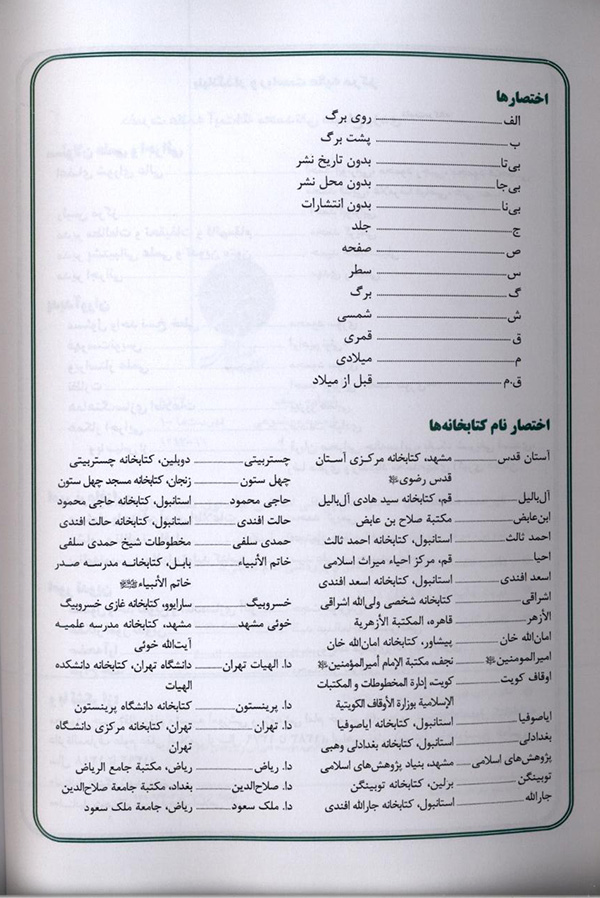 اختصارها
الف روی برگ
ب پشت برگ
بی‌تا بدون تاریخ نشر
بی‌جا بدون محل نشر
بی‌نا بدون انتشارات
ج جلد
ص صفحه
س سطر
گ برگ
ش شمسی
ق قمری
م میلادی
ق.م قبل از میلاد
اختصار نام کتابخانه‌ها
آستان قدس مشهد، کتابخانه مرکزی آستان
قدس رضوی
آل‌بالیل قم، کتابخانه سید هادی آل‌بالیل
ابن‌عابض مکتبة صلاح بن عابض
احمد ثالث استانبول، کتابخانه احمد ثالث
احیا قم، مرکز احیاء میراث اسلامی
اسعد افندی استانبول، کتابخانه اسعد افندی
اشراقی کتابخانه شخصی ولی‌الله اشراقی
الأزهر قاهره، المکتبة الأزهریة
امان‌الله خان پیشاور، کتابخانه امان‌الله خان
امیرالمومنین نجف، مکتبة الإمام أمیرالمؤمنین
اوقاف کویت کویت، إدارة المخطوطات و المکتبات
الإسلامیة بوزارة الأوقاف الکویتیة
ایاصوفیا استانبول، کتابخانه ایاصوفیا
بغدادلی استانبول، کتابخانه بغدادلی وهبی
پژوهش‌های اسلامی مشهد، بنیاد پژوهش‌های اسلامی
توبینگن برلین، کتابخانه توبینگن
جارالله استانبول، کتابخانه جارالله افندی
چستربیتی دوبلین، کتابخانه چستربیتی
چهل ستون زنجان، کتابخانه مسجد چهل ستون
حاجی محمود استانبول، کتابخانه حاجی محمود
حالت افندی استانبول، کتابخانه حالت افندی
حمدی سلفی مخطوطات شیخ حمدی سلفی
خاتم الأنبیاء بابل، کتابخانه مدرسه صدر
خاتم الأنبیاء
خسروبیگ سارایوو، کتابخانه غازی خسروبیگ
خوئی مشهد مشهد، کتابخانه مدرسه علمیه
آیت‌الله خوئی
دا. الهیات تهران دانشگاه تهران، کتابخانه دانشکده
الهیات
دا. پرینستون کتابخانه دانشگاه پرینستون
دا. تهران تهران، کتابخانه مرکزی دانشگاه
تهران
دا. ریاض ریاض، مکتبة جامع الریاض
دا. صلاح‌الدین بغداد، مکتبة جامعة صلاح‌الدین
دا. ملک سعود ریاض، جامعة ملک سعود